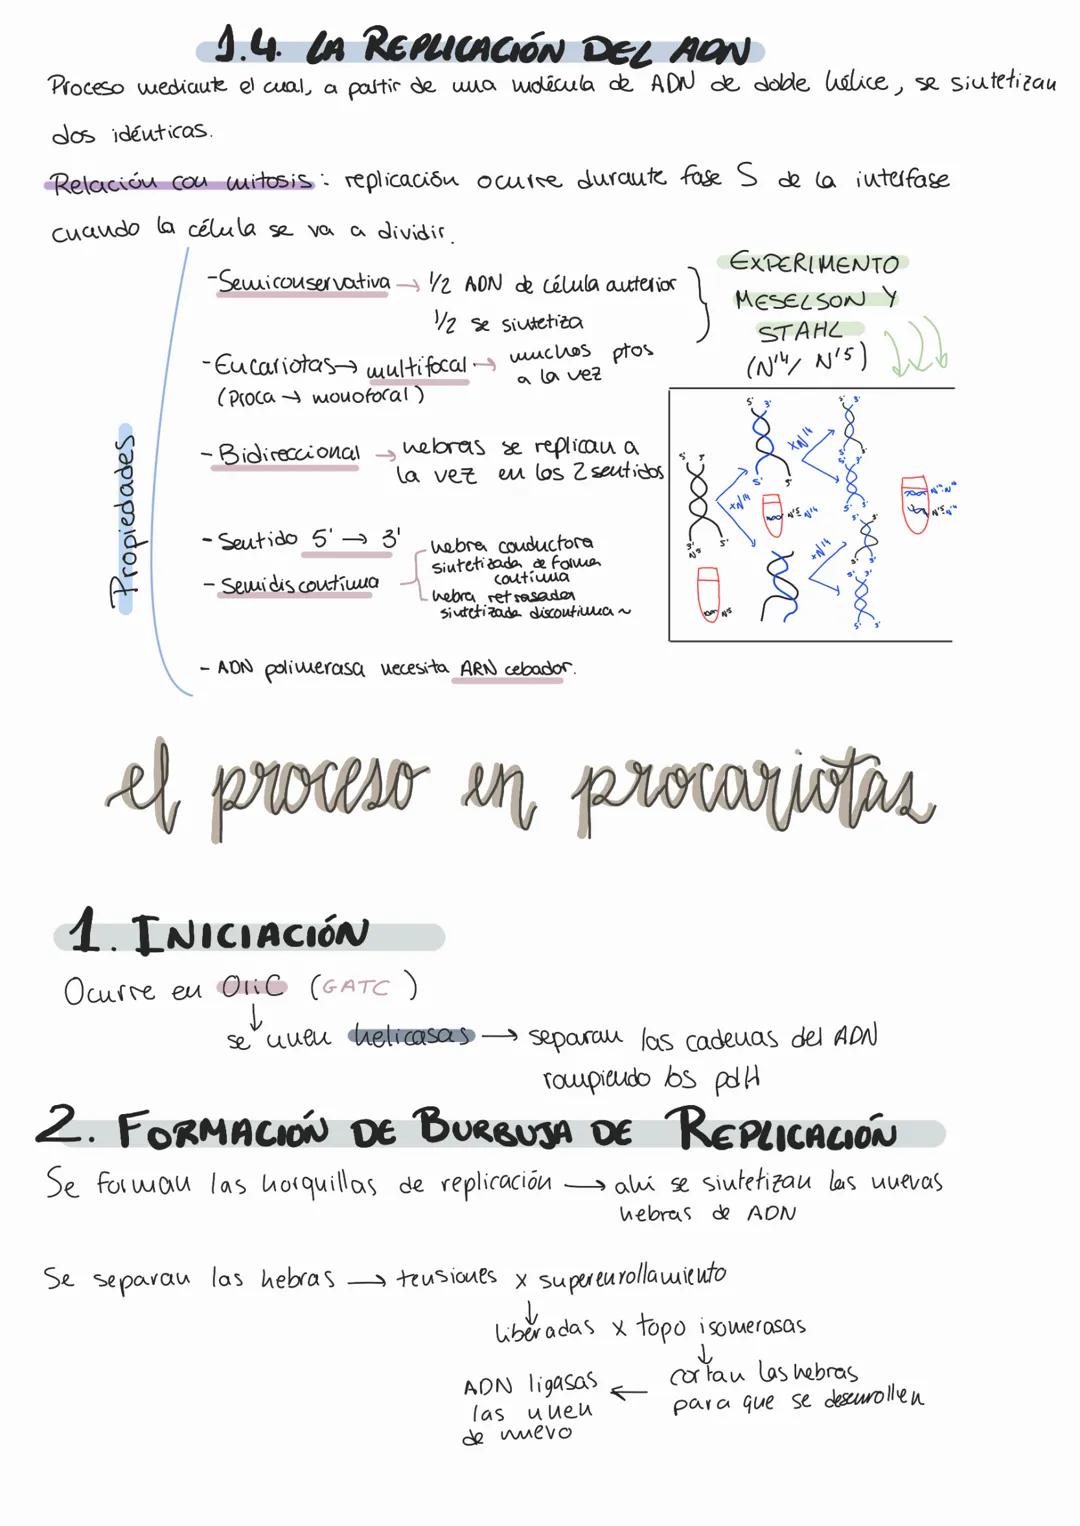 1.4. LA REPLICACIÓN DEL ADN
Proceso mediante el cual, a partir de una molécula de ADN de doble hélice, se sintetizan
dos idénticas.
Relación con mitosis: replicación ocurre durante fase S de la interfase
cuando la célula se va a dividir.
Propiedades
-Semiconservativa → 1/2 ADN de célula anterior
1/2 se sintetiza
-Eucariotas → multifocal → muchos ptos
a la vez
(Proca → monoforal)
-Bidireccional → hebras se replican a
la vez en los 2 sentidos
-Sentido 5' → 3'
-Semidiscontinua
hebra conductora
sintetizada de forma
continua
hebra retrasada
sintetizada discontinua ~
- ADN polimerasa necesita ARN cebador.
EXPERIMENTO
MESELSON Y
STAHL
(N14/ N15)
5' 3'
5' 3'
xN14
xN14
xN14
3' 5'
N15
N15
N15 N14
N14 N14
N15 N14
el proceso en procariotas
1. INICIACIÓN
Ocurre en OriC (GATC)
↓
se unen helicasas → separan las cadenas del ADN
rompiendo los pdH
2. FORMACIÓN DE BURBUJA DE REPLICACIÓN
Se forman las horquillas de replicación → ahí se sintetizan las nuevas
hebras de ADN
Se separan las hebras → tensiones x superenrollamiento
↓
liberadas x topo isomerasas
↓
cortan las hebras
para que se desenrollen
← ADN ligasas
las unen
de nuevo